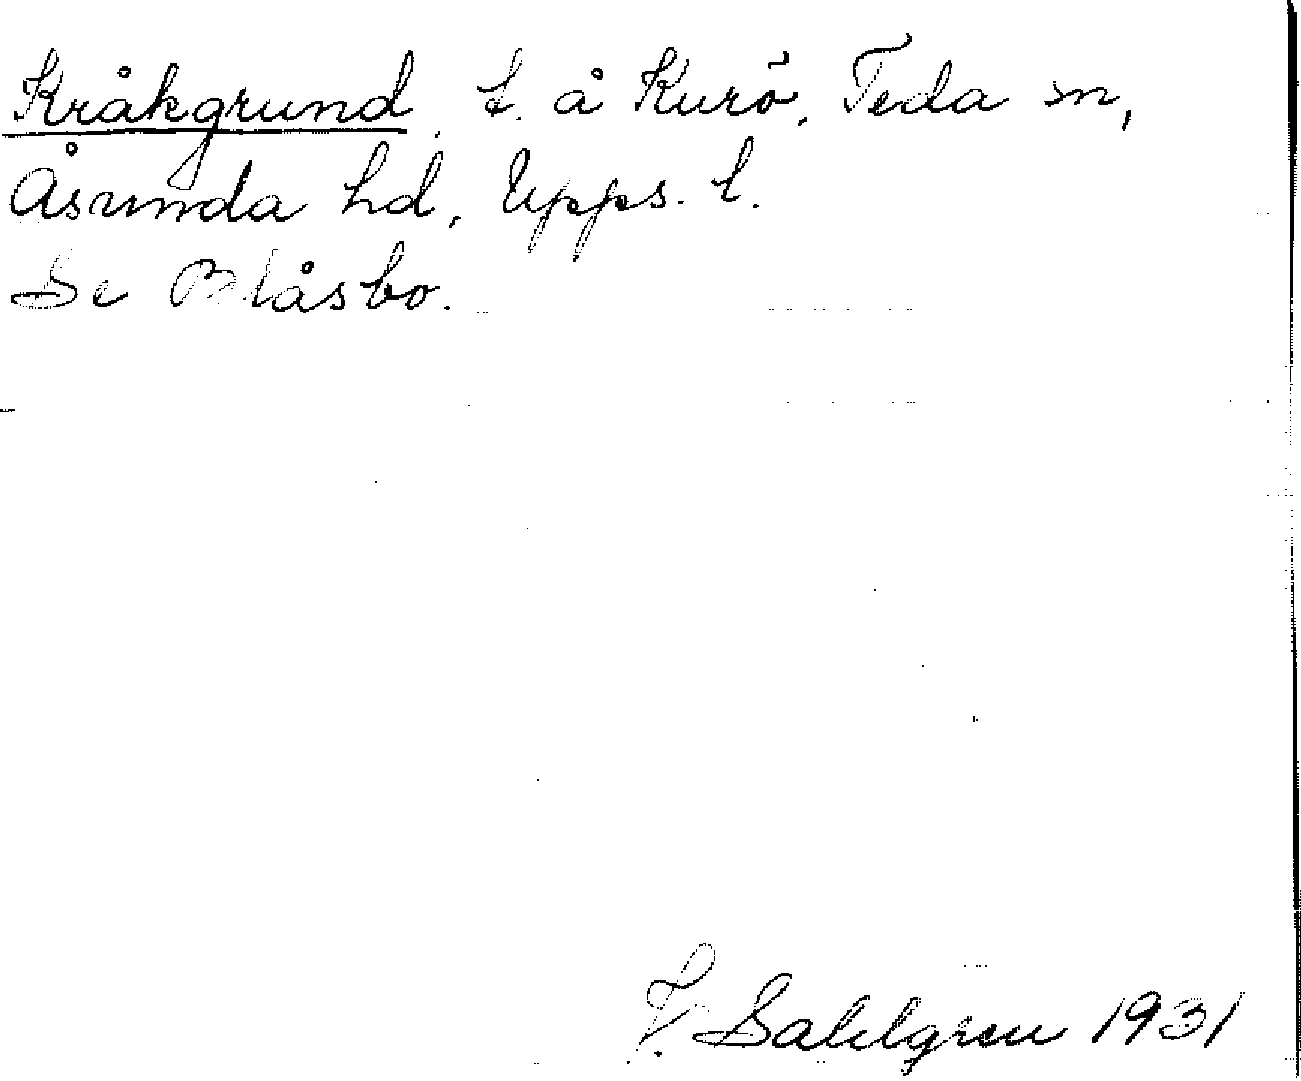 Kråkgrund, t. å Kurö, Teda sn,
Åsunda hd, Upps. l.
Se Blåsbo.
J. Sahlgren 1931